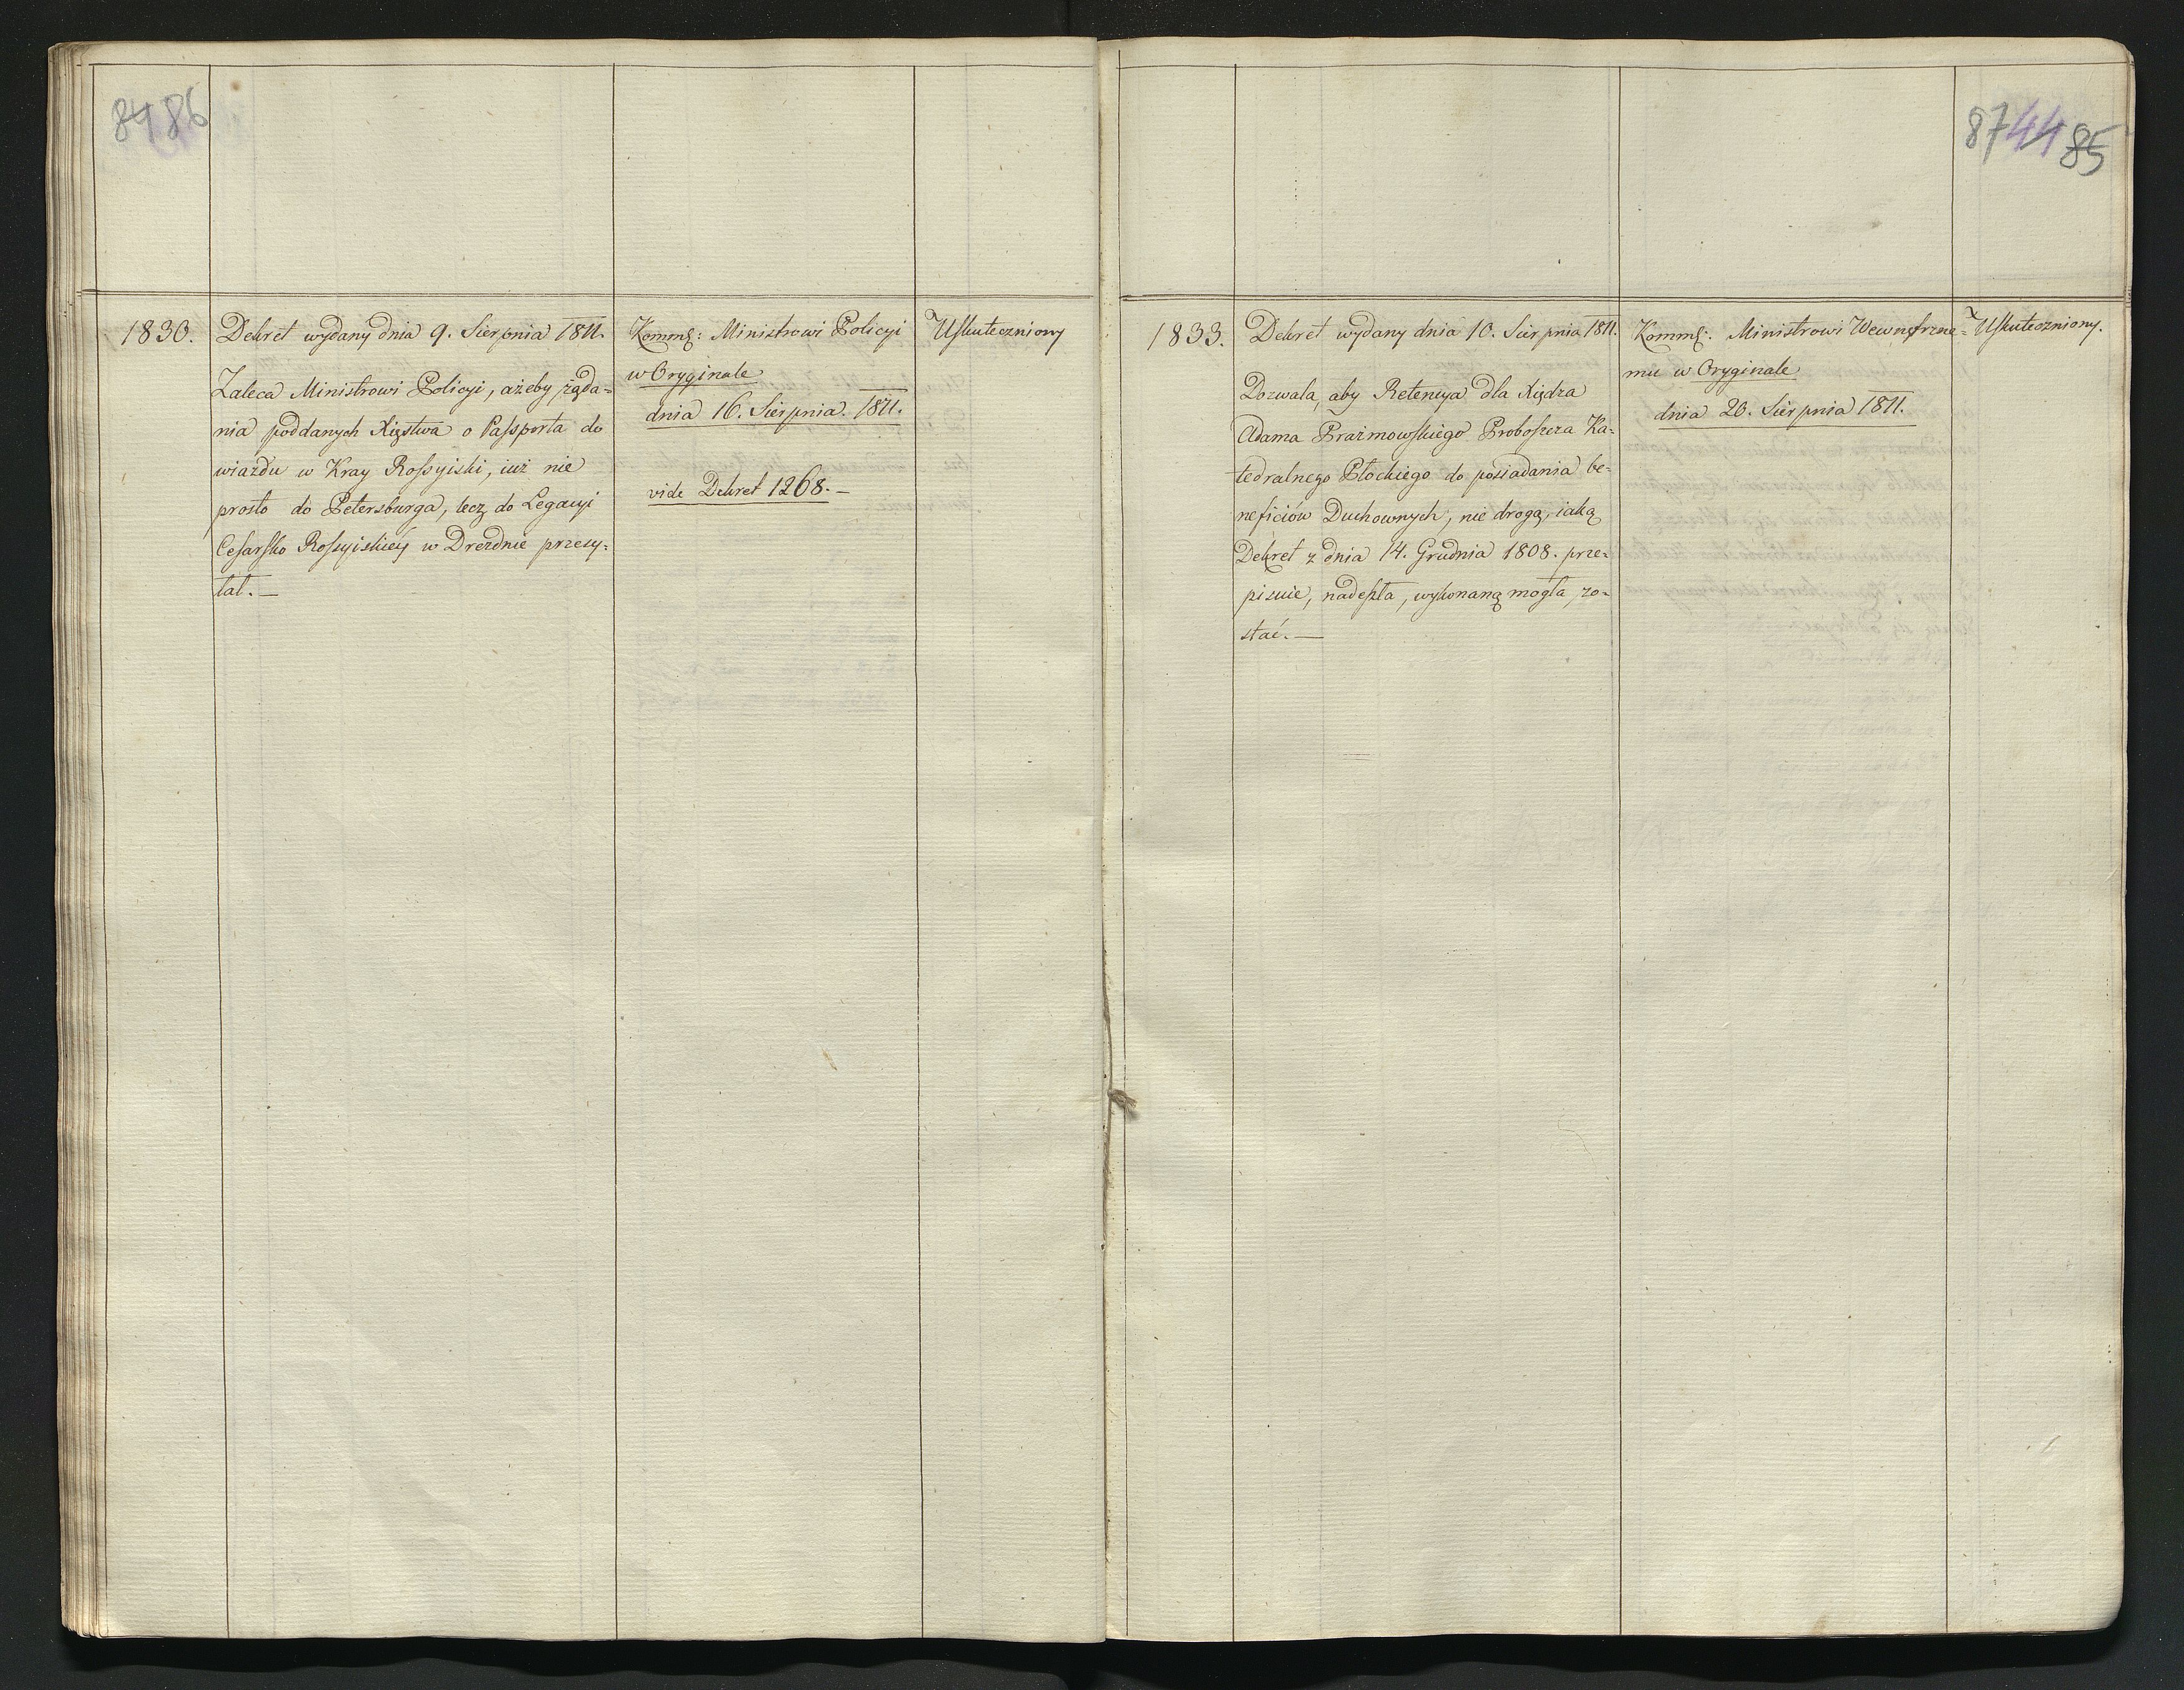 84 86
1830.
Dekret wydany dnia 9. Sierpnia 1811.
Zaleca Ministrowi Policyi, ażeby żąda=
nia poddanych Xięstwa o Passporta do
wiazdu w Kray Rossyiski, iuż nie
prosto do Petersburga, lecz do Legacyi
Cesarsko Rossyiskiéy w Dreznie przesy=
łał.—
Kommg: Ministrowi Policyi
w Oryginale
dnia 16. Sierpnia. 1811.
vide Dekret 1268.—
Uskuteczniony
87 44 85
1833.
Dekret wydany dnia 10. Sierpnia 1811.
Dozwala, aby Retencya dla Xiędza
Adama Prażmowskiego Proboszcza Ka=
tedralnego Płockiego do posiadania be=
neficiów Duchownych, nie drogą, iaką
Dekret z dnia 14. Grudnia 1808. prze=
pisuie, nadeszła, wykonaną mogła zo=
stać.—
Kommg: Ministrowi Wewnętrzne=
mu w Oryginale
dnia 20. Sierpnia 1811.
Uskuteczniony.